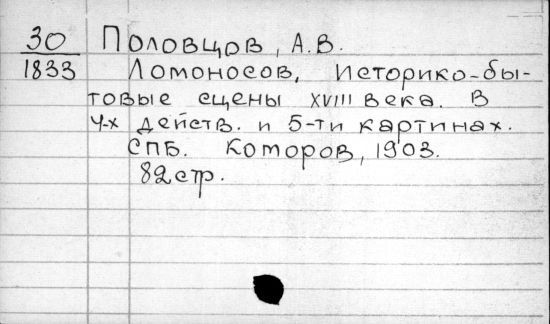 30 Половцов, А.В.
1833 Ломоносов. Историко-бы-
товые сцены XVIII века. В
4-х действ. и 5-ти картинах.
СПб. Которов, 1903.
82 стр.